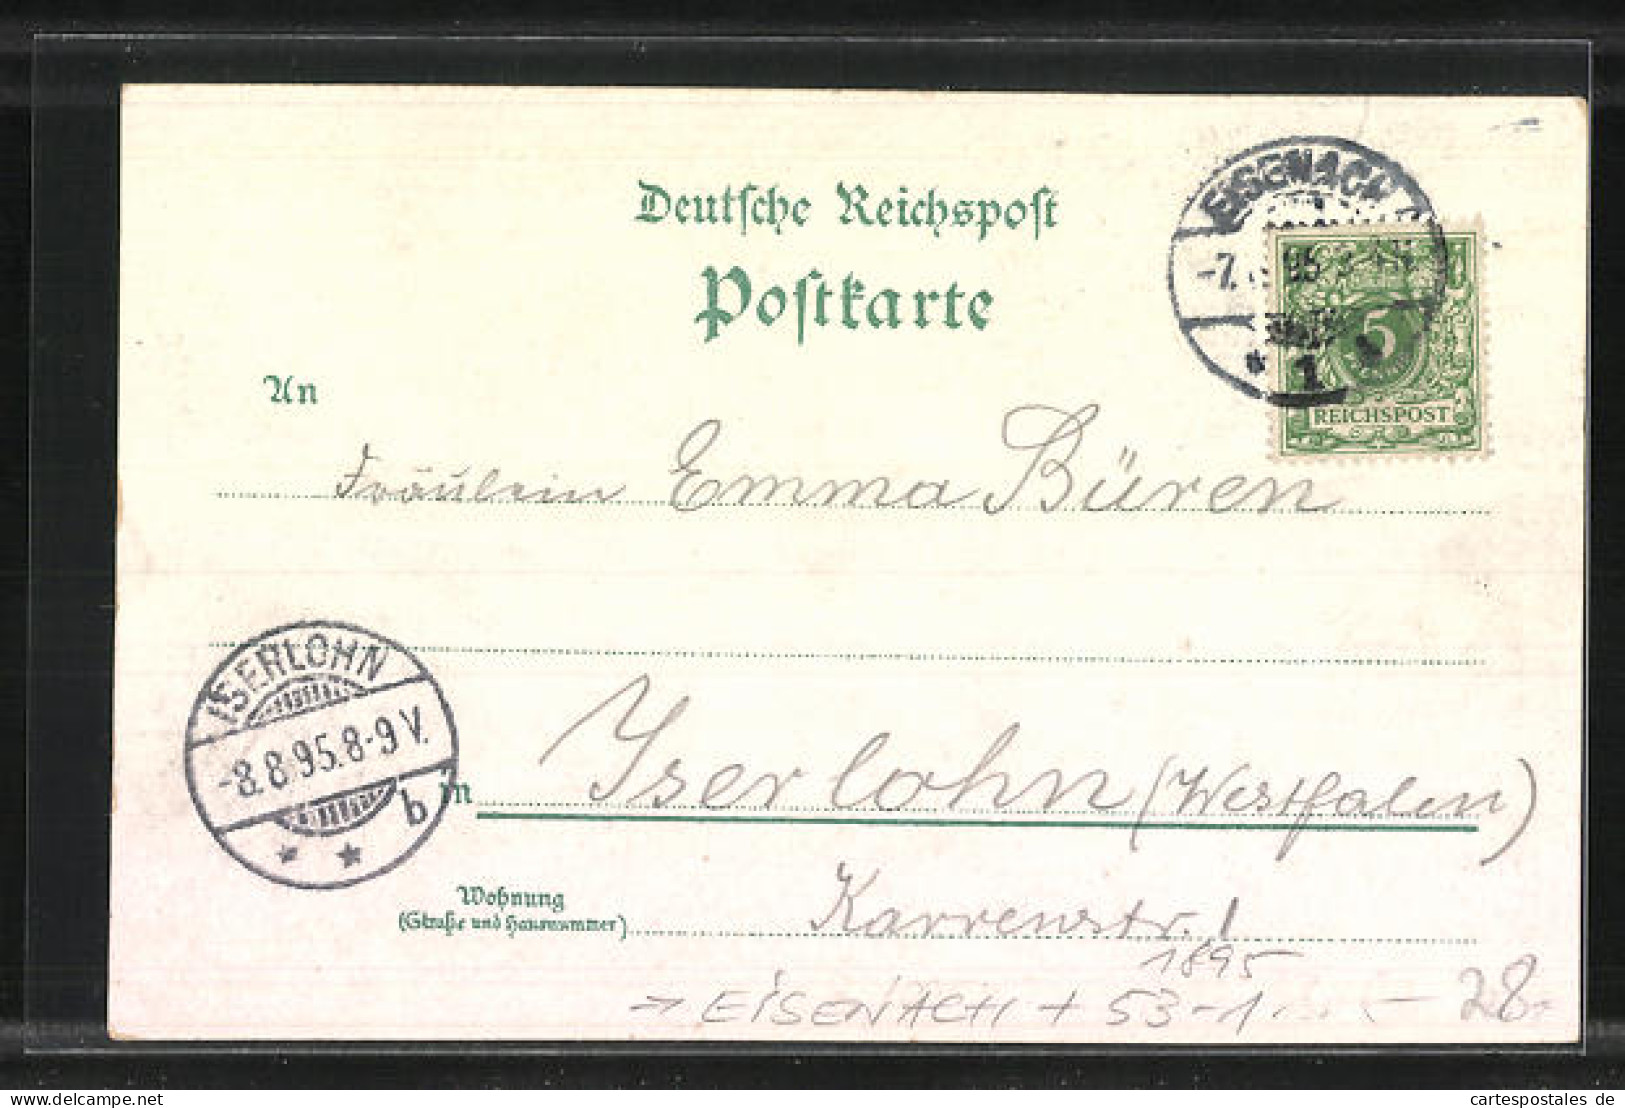 Deutsche Reichspost
Postkarte
EISENACH
-7. 95
* 1
5
REICHSPOST
An
Fräulein Emma Büren
ISERLOHN
-8.8.95.8-9 V.
b
* *
in Yserlohn (Westfalen)
Wohnung
(Straße und Hausnummer)
Karrenstr. 1
1895
→ EISENACH + 53-1
28.-
cartespostales.de